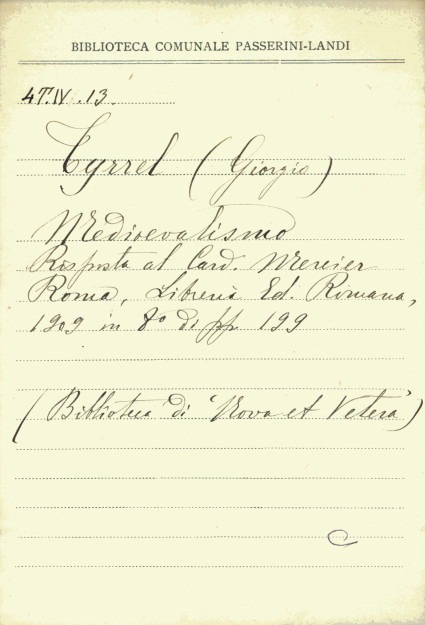 BIBLIOTECA COMUNALE PASSERINI-LANDI
4T.IV.13.
Tyrrel (Giorgio)
Medioevalismo
Risposta al Card. Mercier
Roma, Libreria Ed. Romana,
1909 in 8º di pp 199
(Biblioteca di "Nova et Vetera")